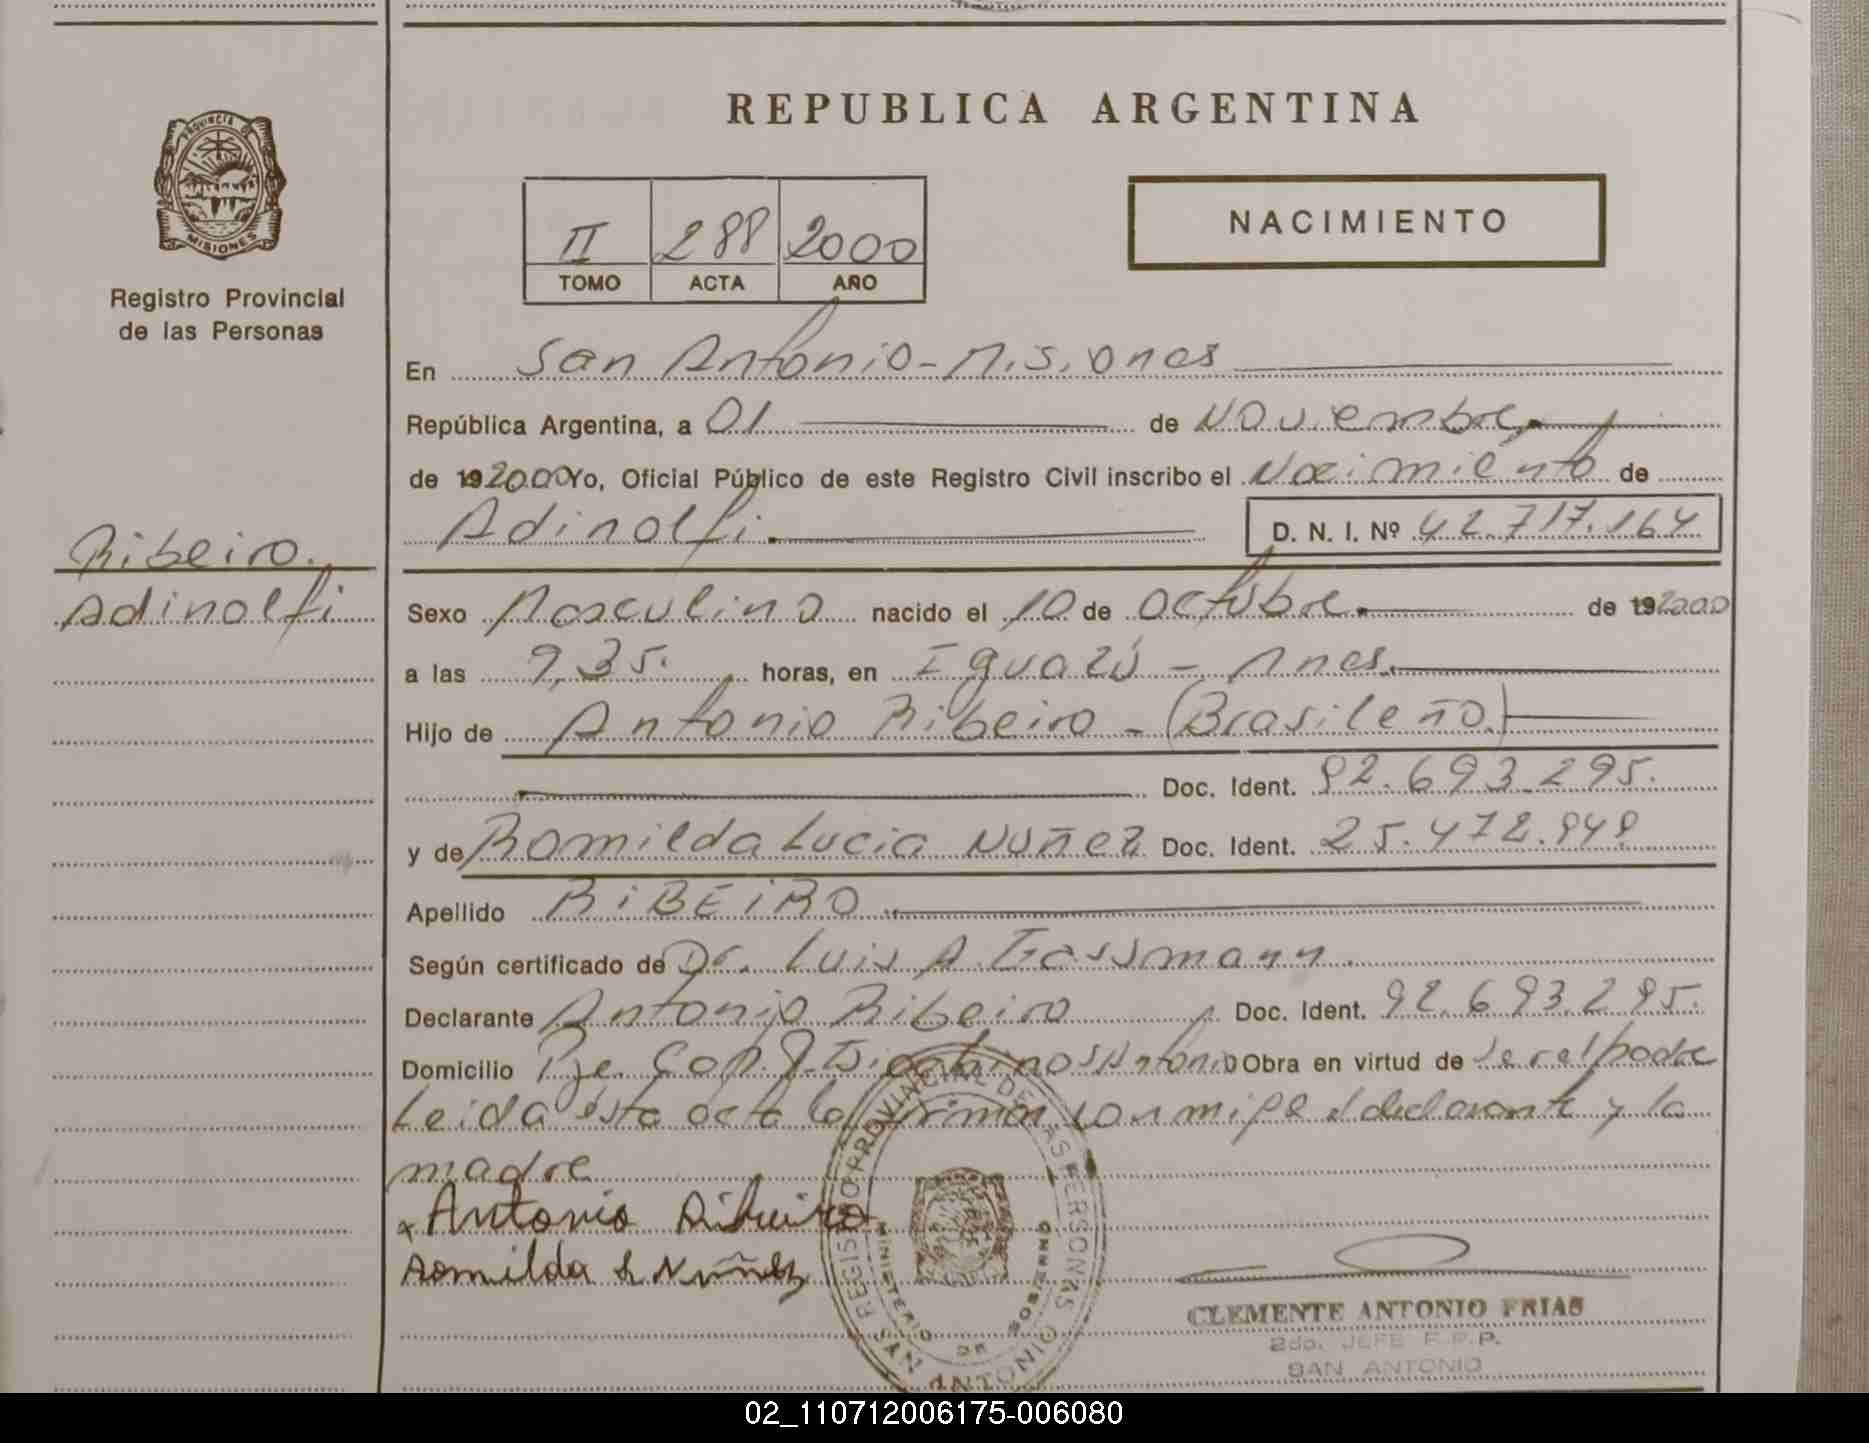 REPUBLICA ARGENTINA
PROVINCIA DE
MISIONES
Registro Provincial
de las Personas
NACIMIENTO
II 288 2000
TOMO ACTA AÑO
En San Antonio - Misiones
República Argentina, a 01 de Noviembre
de 192000 Yo, Oficial Público de este Registro Civil inscribo el Nacimiento de
Adinolfi. D. N. I. Nº 42.717.164
Ribeiro.
Adinolfi
Sexo Masculino nacido el 10 de Octubre. de 192000
a las 9,35. horas, en Iguazú - Mnes.
Hijo de Antonio Ribeiro - (Brasileño)
Doc. Ident. 92.693.295.
y de Romilda Lucia Nuñez Doc. Ident. 25.472.949
Apellido RIBEIRO.
Según certificado de Dr. Luis A.
Declarante Antonio Ribeiro Doc. Ident. 92.693.295.
Domicilio Antonio Obra en virtud de ser el padre
Leida ésta acta la firman conmigo el declarante y la
madre
x Antonio Ribeiro
Romilda L Nuñez
REGISTRO PROVINCIAL DE LAS PERSONAS
MINISTERIO DE GOBIERNO
SAN ANTONIO
CLEMENTE ANTONIO FRIAS
2do. JEFE R.P.P.
SAN ANTONIO
02_110712006175-006080